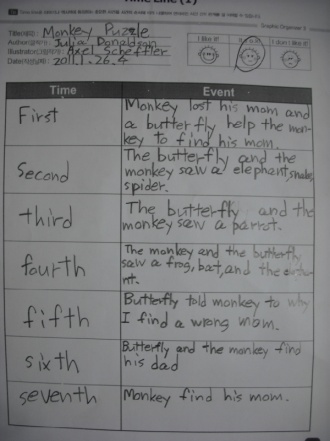 Time Line (1)
Graphic Organizer
Title(제목): Monkey Puzzle
Author(글작가): Julia Donaldson
Illustrator(그림작가): Axel Scheffler
Date(작성일): 2011.1.26.4
I like it!
I don't like it!
Time Event
First
Monkey lost his mom and
a butterfly help the mon-
key to find his mom.
Second
The butterfly and the
monkey saw a elephant, snake,
spider.
third
The butterfly and the
monkey saw a parrot.
fourth
The monkey and the butterfly
saw a frog, bat, and the
nt.
fifth
Butterfly told monkey to why
I find a wrong mom.
sixth
Butterfly and the monkey find
his dad
seventh
Monkey find his mom.